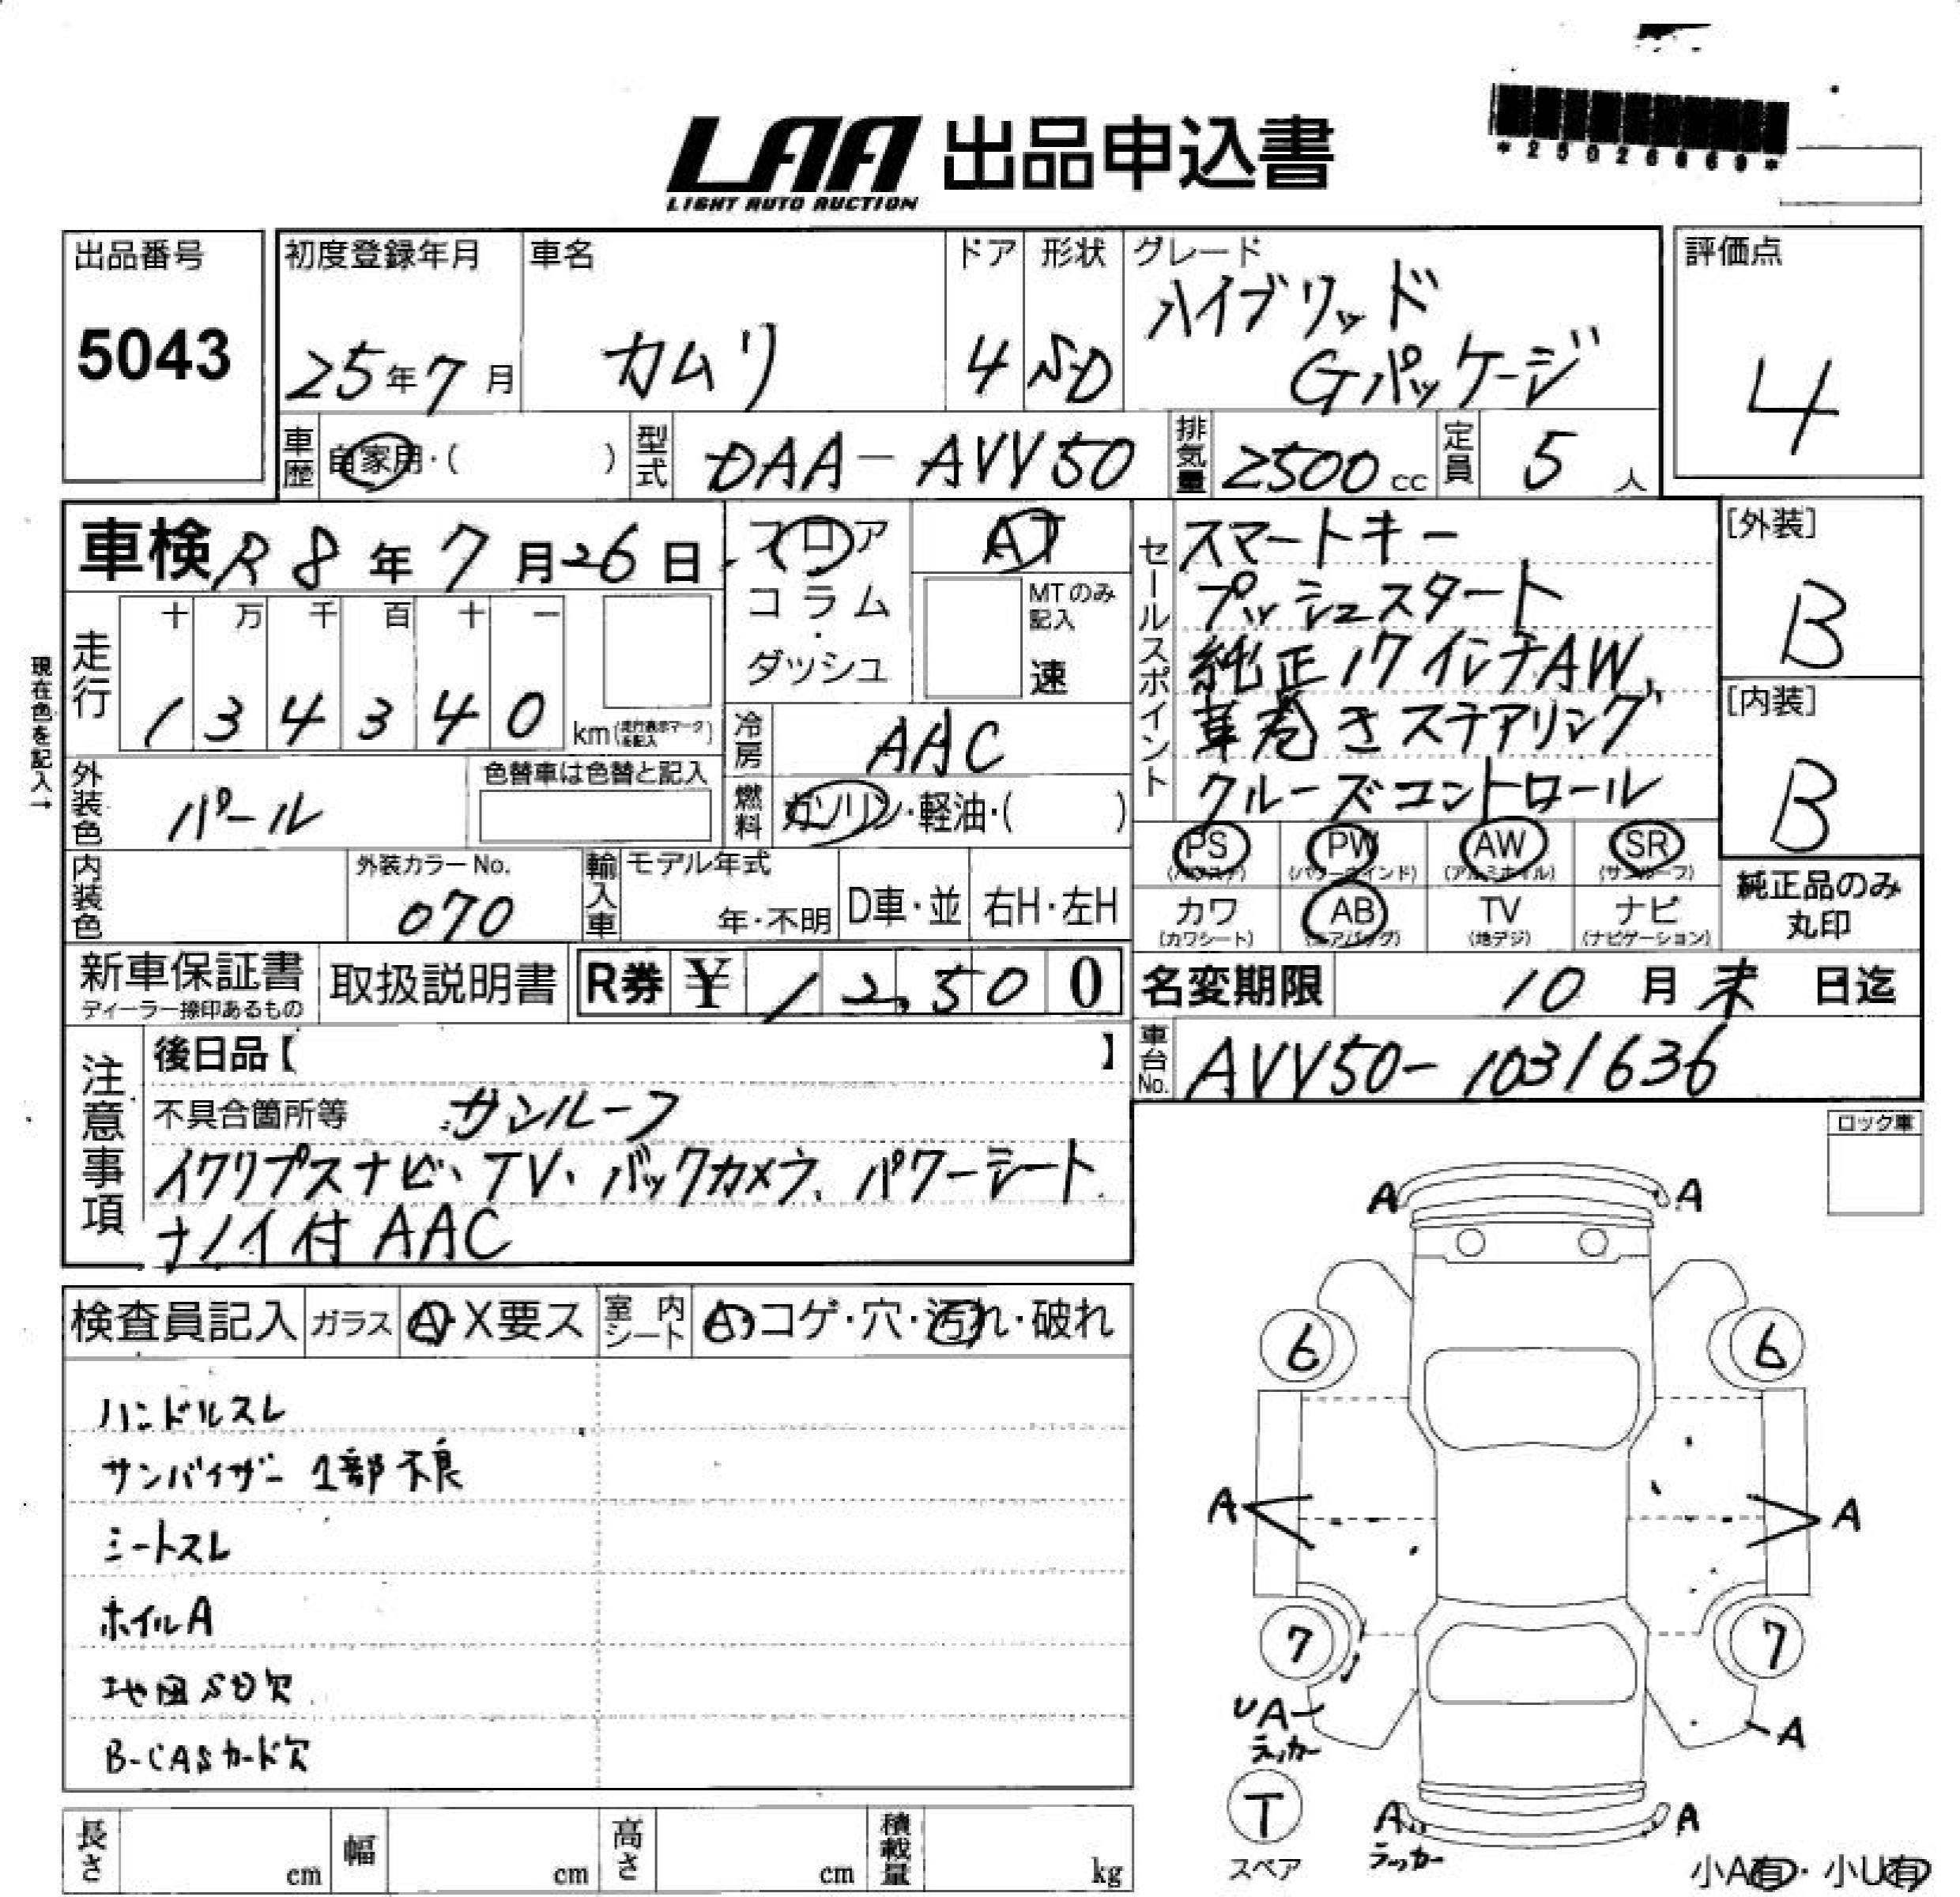 LAA 出品申込書
LIGHT AUTO AUCTION
*25026669*
出品番号
5043
初度登録年月
25年7月
車名
カムリ
ドア
4
形状
SD
グレード
ハイブリッド
Gパッケージ
評価点
4
車歴
自家用・( )
型式
DAA-AVV50
排気量
2500cc
定員
5人
車検 R8年7月26日
フロア
コラム
・
ダッシュ
AT
MTのみ
記入
速
セールスポイント
スマートキー
プッシュスタート
純正17インチAW
革巻きステアリング
クルーズコントロール
[外装]
B
[内装]
B
現在色を記入→
走行
十 万 千 百 十 一
1 3 4 3 4 0 km(走行表示マークを記入)
冷房
AAC
外装色
パール
色替車は色替と記入
燃料
ガソリン・軽油・( )
PS
(パワステ)
PW
(パワーウインド)
AW
(アルミホイル)
SR
(サンルーフ)
カワ
(カワシート)
AB
(エアバッグ)
TV
(地デジ)
ナビ
(ナビゲーション)
純正品のみ
丸印
内装色
外装カラーNo.
070
輸入車
モデル年式
年・不明
D車・並
右H・左H
新車保証書
ディーラー捺印あるもの
取扱説明書
R券 ¥ 12,500
名変期限 10月末日迄
注意事項
後日品【 】
不具合箇所等 サンルーフ
イクリプスナビ、TV、バックカメラ、パワーシート
ナノイ付AAC
車台No.
AVV50-1031636
ロック車
検査員記入
ガラス
A・X要ス
室内シート
A・コゲ・穴・汚れ・破れ
ハンドルスレ
サンバイザー 1部不良
シートスレ
ホイルA
地図SD欠
B-CASカード欠
A A
6 6
A A
7 7
UA
ラッカー
A
T
スペア
A
ラッカー
A
小A有・小U有
長さ cm
幅 cm
高さ cm
積載量 kg